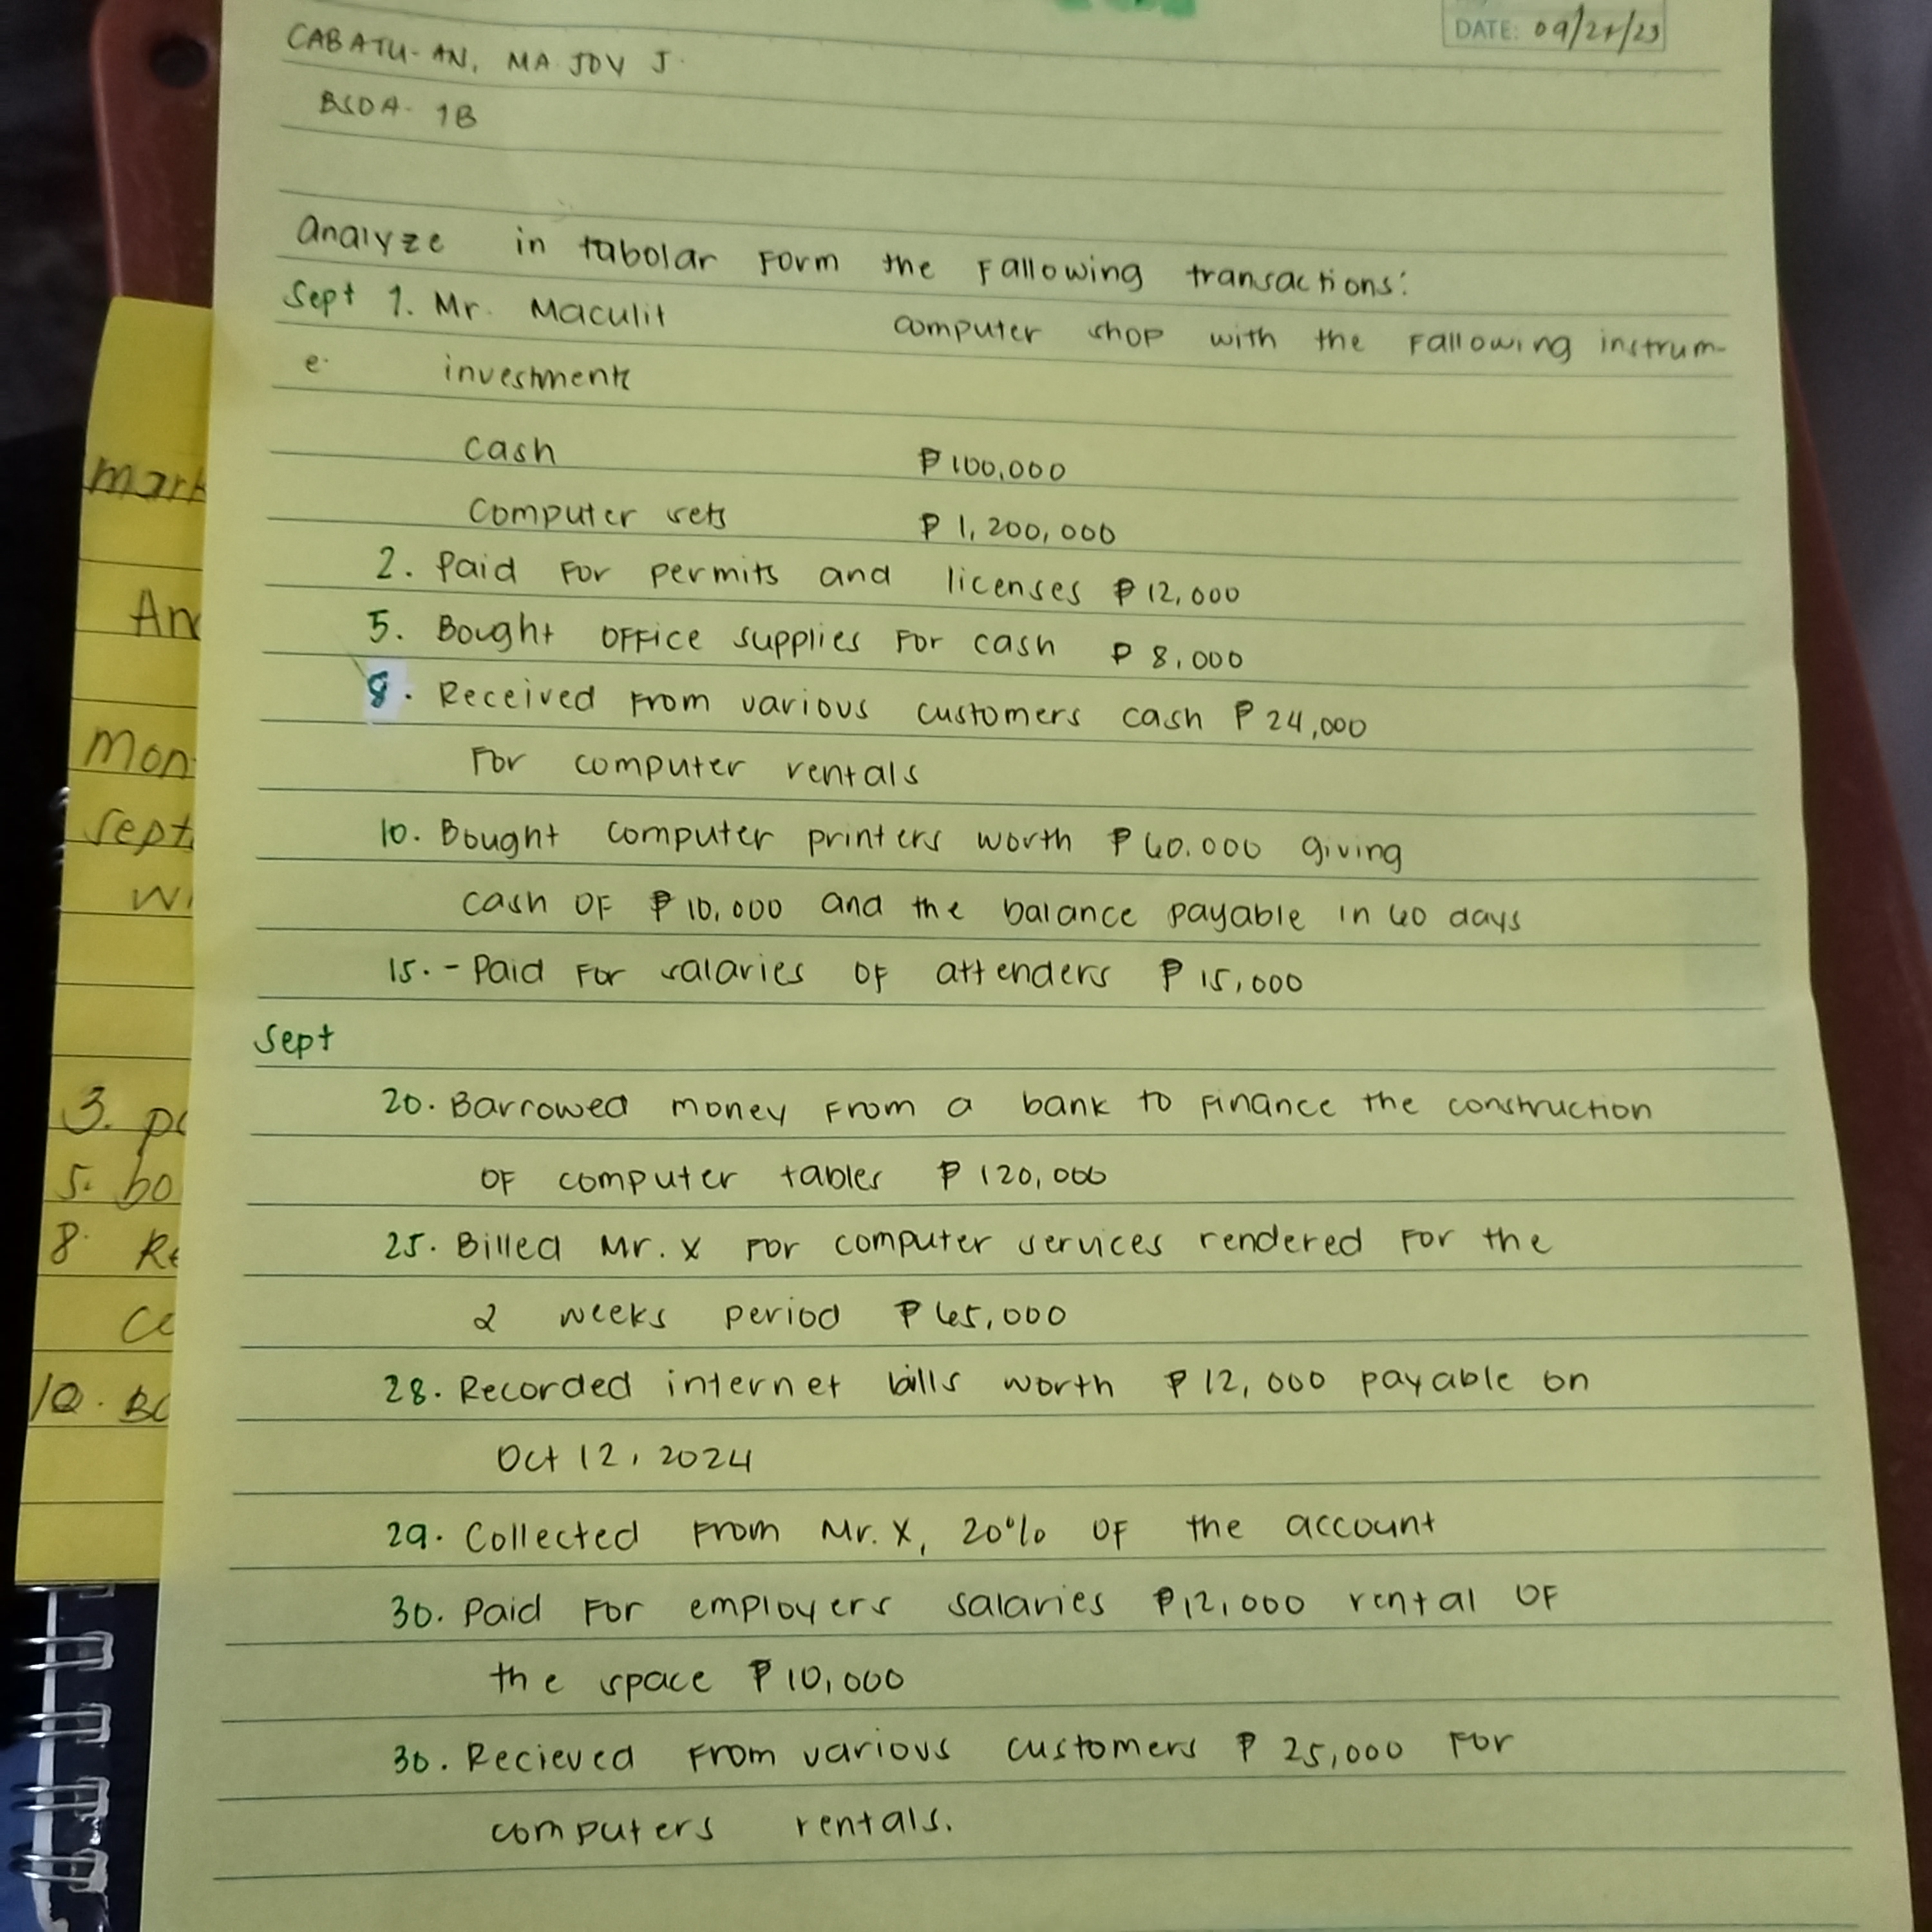 DATE: 09/21/23
CABATU-AN, MA JOY J.
BSOA- 1B
Analyze in tabolar Form the Fallowing transactions:
Sept 1. Mr. Maculit computer shop with the Fallowing instrum-
e. investments
cash ₱100,000
Computer sets ₱ 1,200,000
2. Paid For permits and licenses ₱ 12,000
5. Bought OFFice supplies For cash ₱ 8,000
8. Received From various customers cash ₱ 24,000
For computer rentals
10. Bought computer printers worth ₱ 60.000 giving
cash OF ₱ 10,000 and the balance payable in 60 days
15. - Paid For salaries OF attenders ₱ 15,000
Sept
20. Barrowed money From a bank to Finance the construction
OF computer tables ₱ 120,000
25. Billed Mr. X For computer services rendered For the
2 weeks period ₱ 65,000
28. Recorded internet bills worth ₱ 12,000 payable on
Oct 12, 2024
29. Collected From Mr. X, 20% OF the account
30. Paid For employers salaries ₱12,000 rental OF
the space ₱ 10,000
30. Recieved From various customers ₱ 25,000 For
computers rentals.
mark
An
Mon
Sept
Wi
3. pa
5. bo
8. Re
Ce
10. Bo